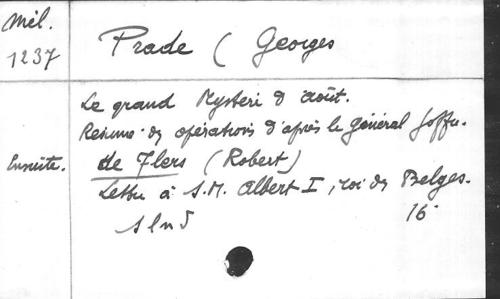 Mél.
1237
Prade ( Georges
Le grand Mystère d'août.
Résumé des opérations d'après le général Joffre.
Ensuite. de Flers (Robert)
Lettre à S.M. Albert I, roi des Belges.
s l n d 16°